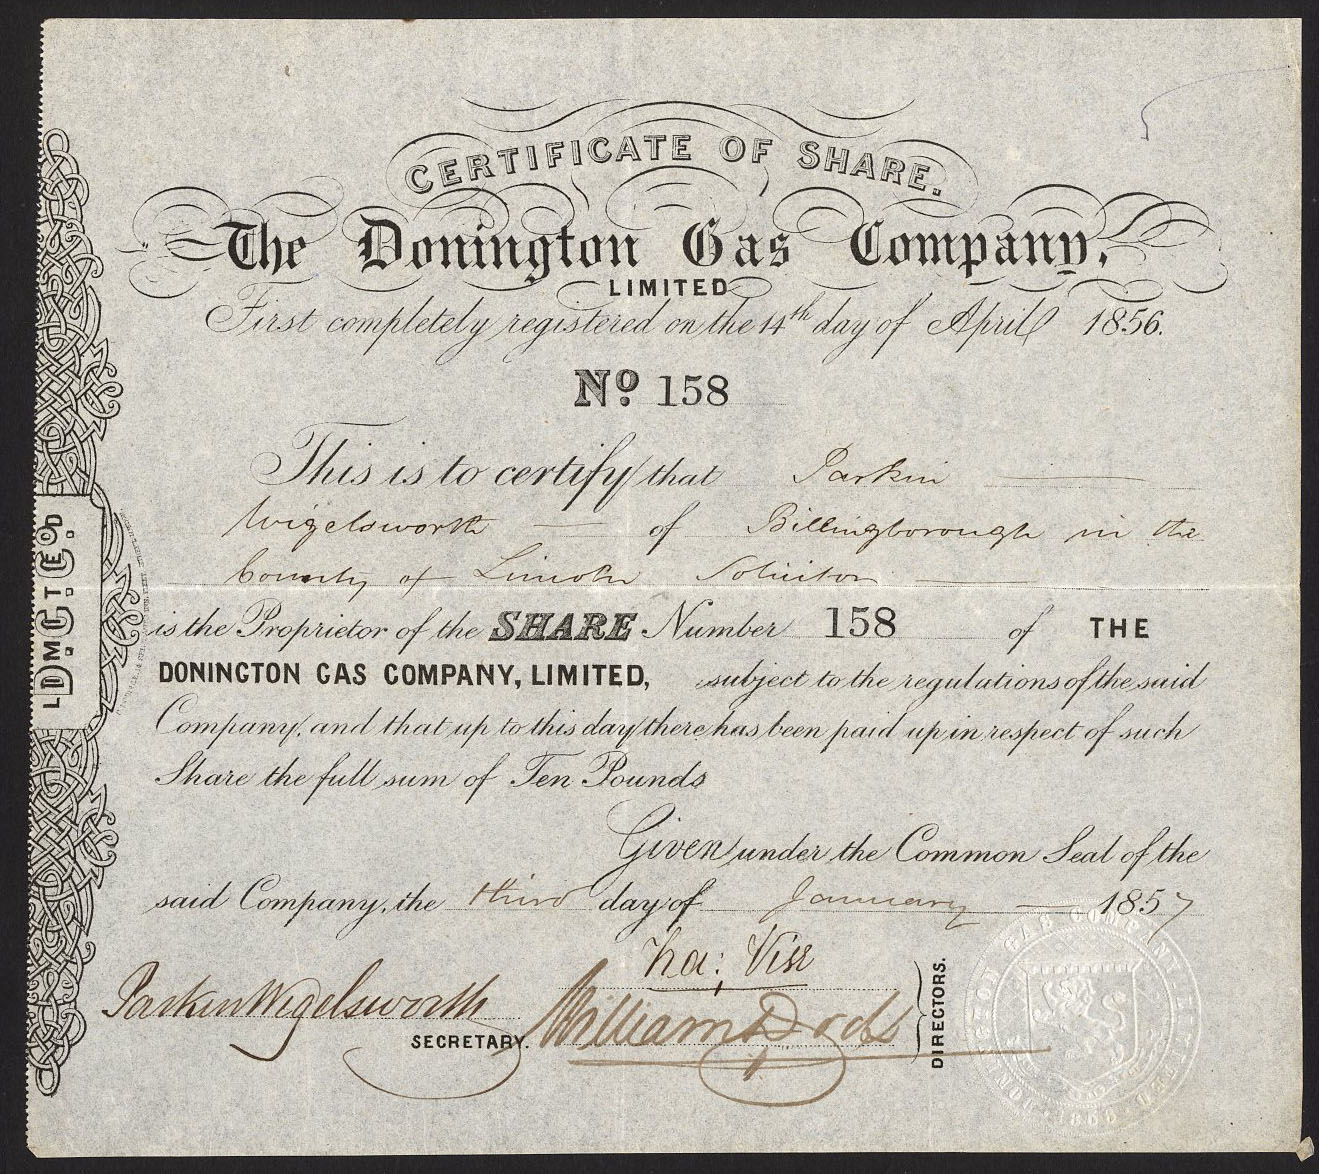 CERTIFICATE OF SHARE.
The Donington Gas Company,
LIMITED
First completely registered on the 14th day of April 1856.
No. 158
This is to certify that Parkin
Wigelsworth of Billingborough in the
County of Lincoln Solicitor
is the Proprietor of the SHARE Number 158 of THE
DONINGTON GAS COMPANY, LIMITED, subject to the regulations of the said
Company, and that up to this day there has been paid up in respect of such
Share the full sum of Ten Pounds
Given under the Common Seal of the
said Company, the third day of January 1857
Parkin Wigelsworth
SECRETARY.
William Dods
DIRECTORS.
DONINGTON GAS COMPANY LIMITED